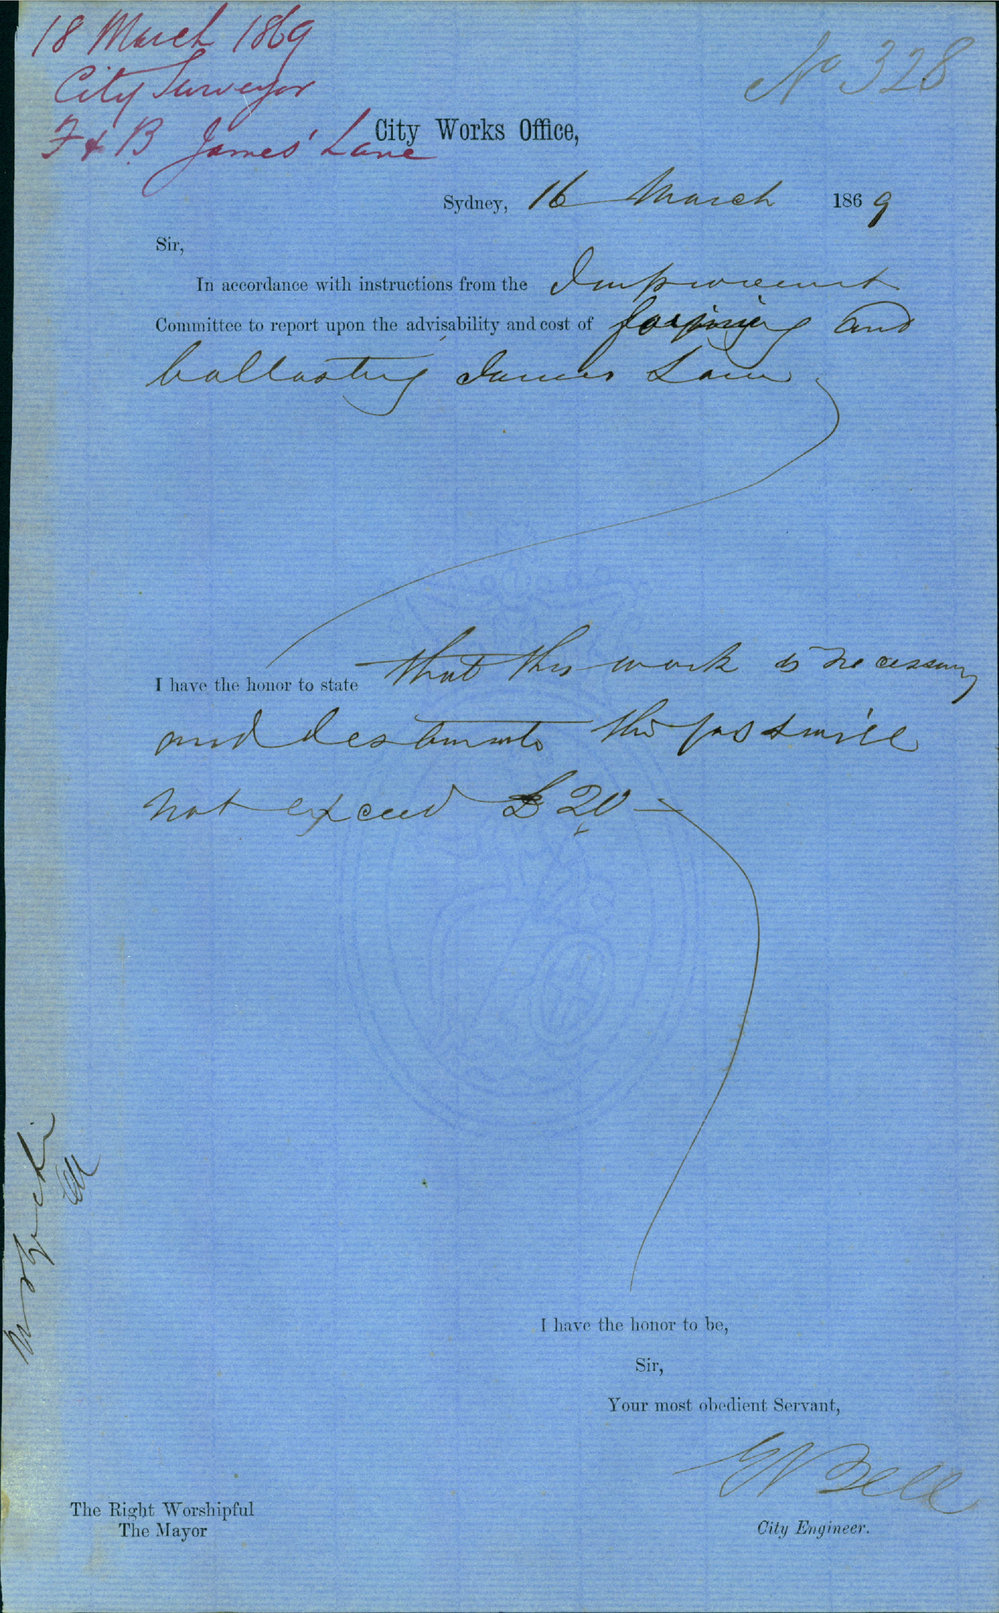 18 March 1869
City Surveyor
F & B James' Lane
No 328
City Works Office,
Sydney, 16 March 1869
Sir,
In accordance with instructions from the Improvement
Committee to report upon the advisability and cost of forming and
ballasting James Lane
I have the honor to state that this work is necessary
and I estimate the cost will
not exceed £20
I have the honor to be,
Sir,
Your most obedient Servant,
E Bell
City Engineer.
The Right Worshipful
The Mayor